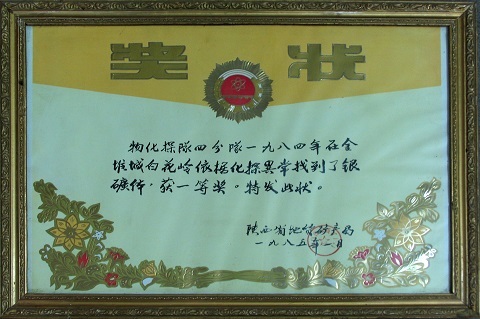 奖状
物化探队四分队一九八四年在金
堆城白花岭依据化探异常找到了银
矿体，获一等奖。特发此状。
陕西省地质矿产局
一九八五年二月